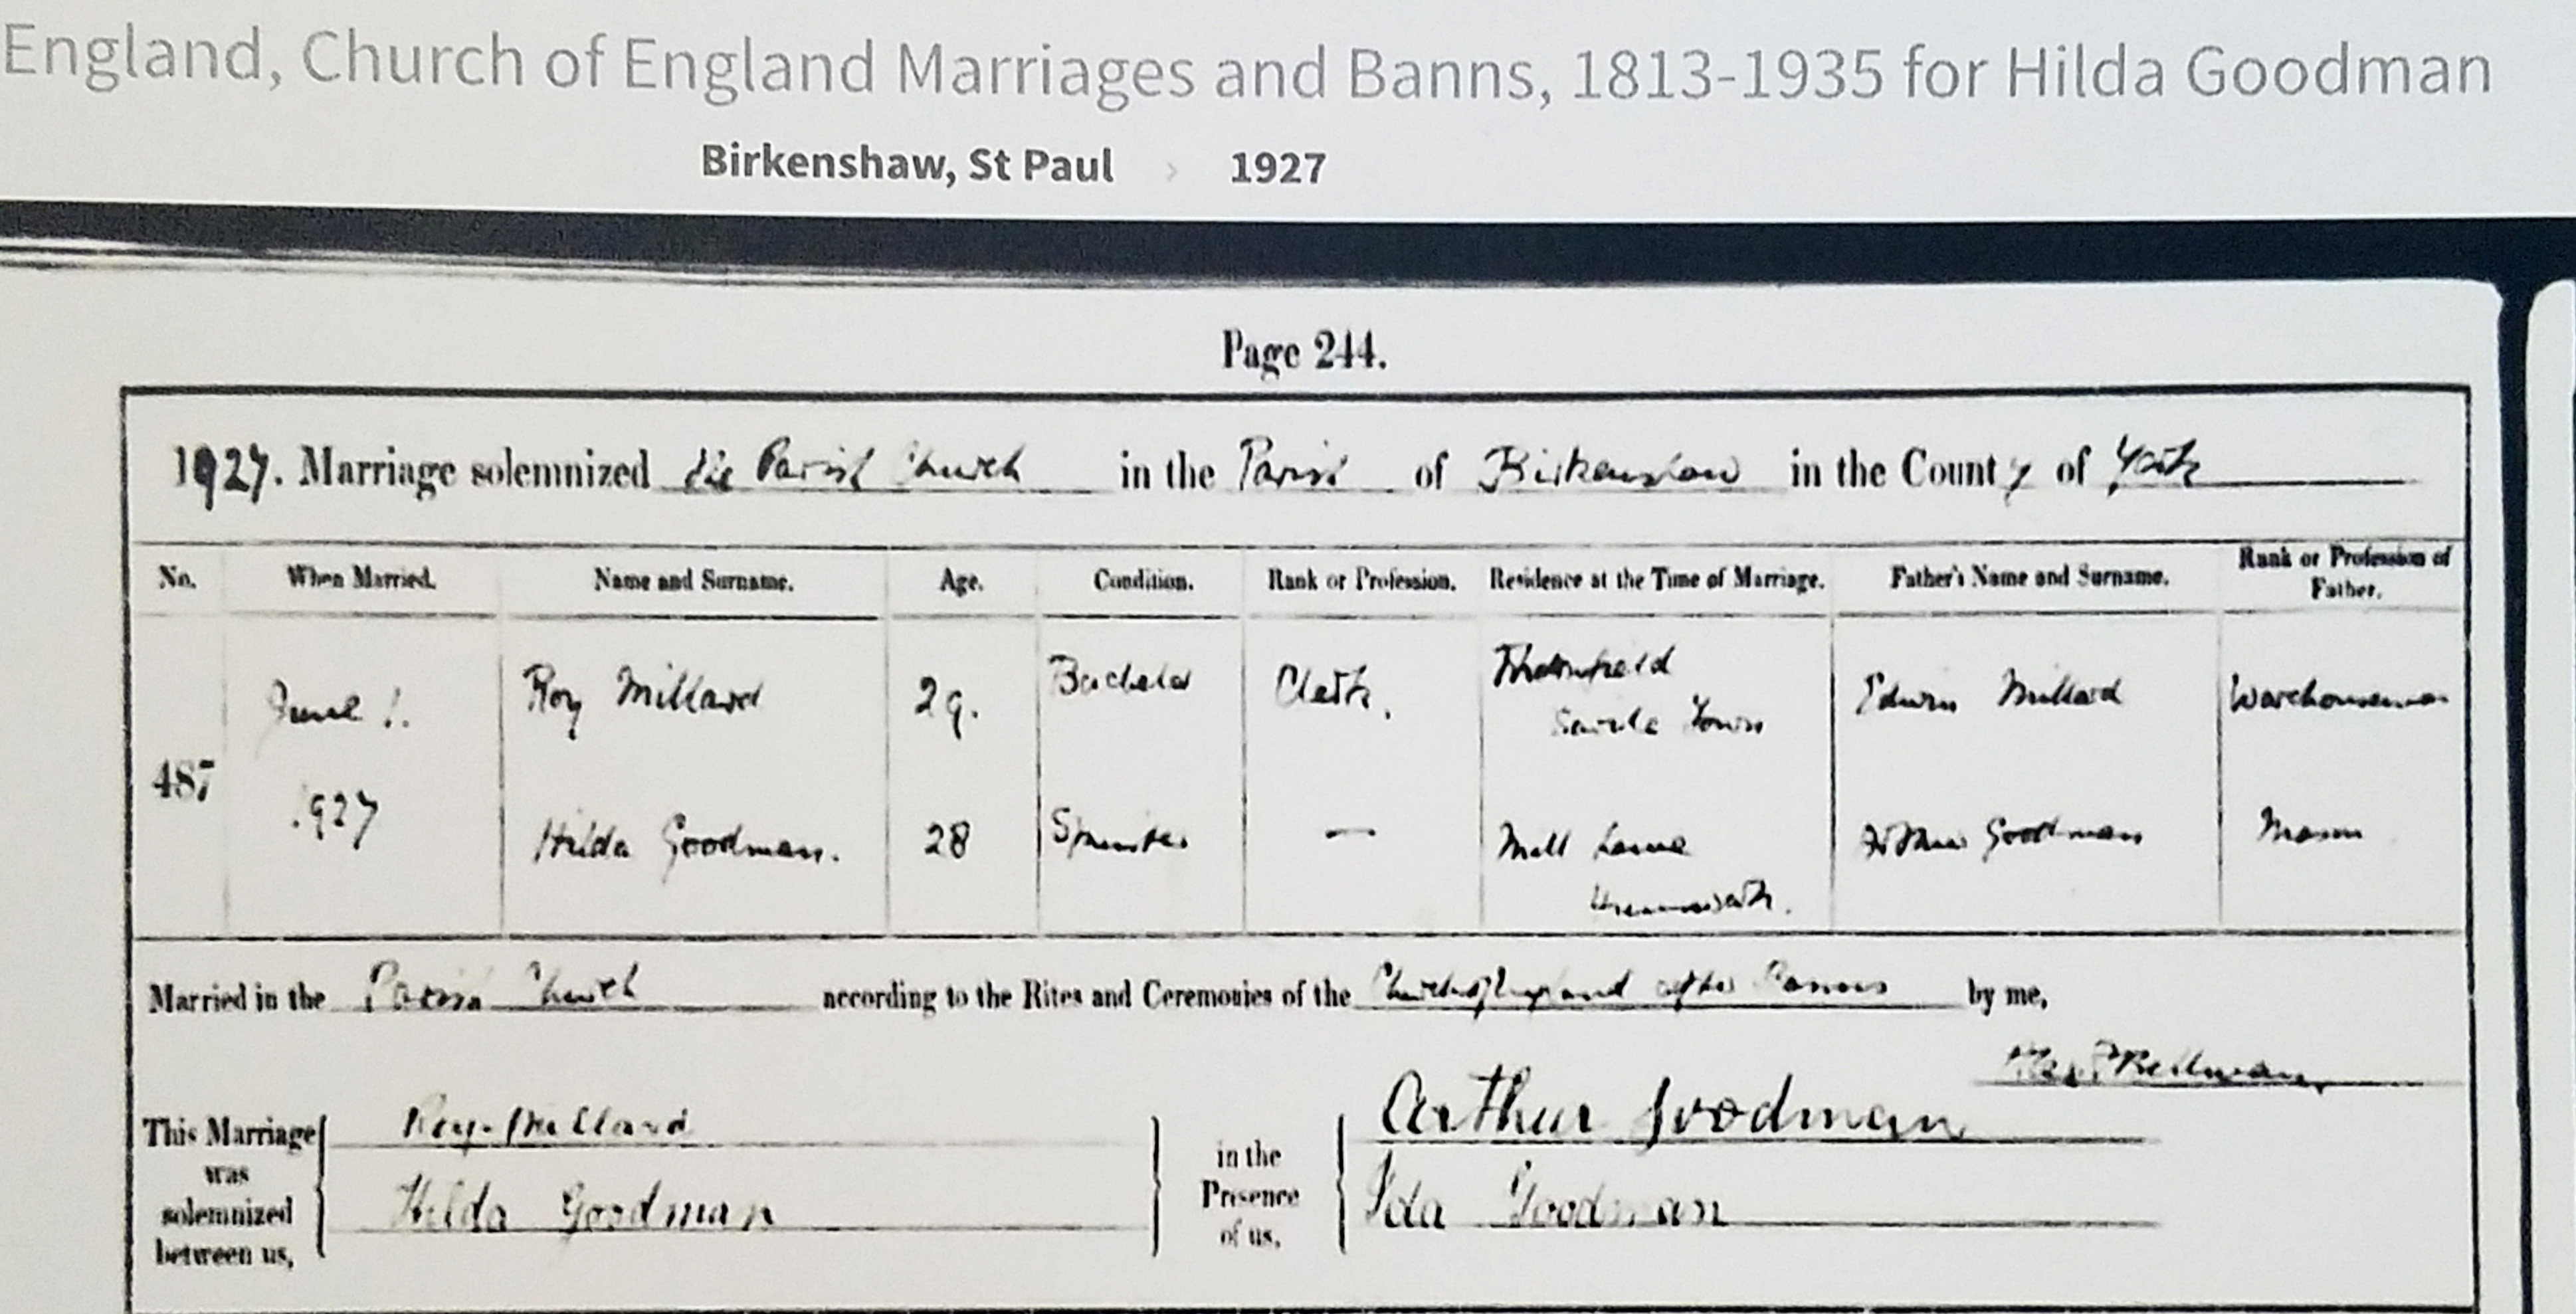 England, Church of England Marriages and Banns, 1813-1935 for Hilda Goodman
Birkenshaw, St Paul › 1927
Page 244.
1927. Marriage solemnized Parish Church in the Parish of Birkenshaw in the County of York
No. When Married. Name and Surname. Age. Condition. Rank or Profession. Residence at the Time of Marriage. Father's Name and Surname. Rank or Profession of Father.
487
June 1. 1927
Roy Millard 29. Bachelor Clerk. Savile Town Edwin Millard Warehouseman
Hilda Goodman. 28 Spinster — Mill Lane Arthur Goodman Mason
Married in the Parish Church according to the Rites and Ceremonies of the Church of England after Banns by me,
This Marriage was solemnized between us,
Roy Millard
Hilda Goodman
in the Presence of us,
Arthur Goodman
Ida Goodman